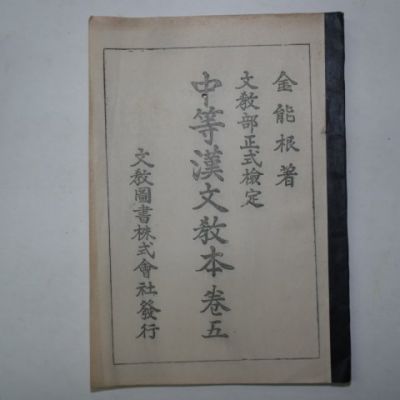 金能根著
文教部正式檢定
中等漢文敎本 卷五
文敎圖書株式會社發行